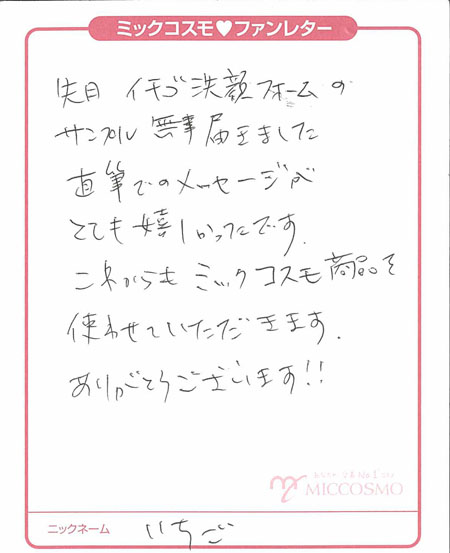 ミックコスモ♥ファンレター
先日 イチゴ洗顔フォームの
サンプル 無事届きました
直筆でのメッセージが
とても嬉しかったです.
これからも ミックコスモ商品を
使わせていただきます.
ありがとうございます!!
MICCOSMO
ニックネーム いちご